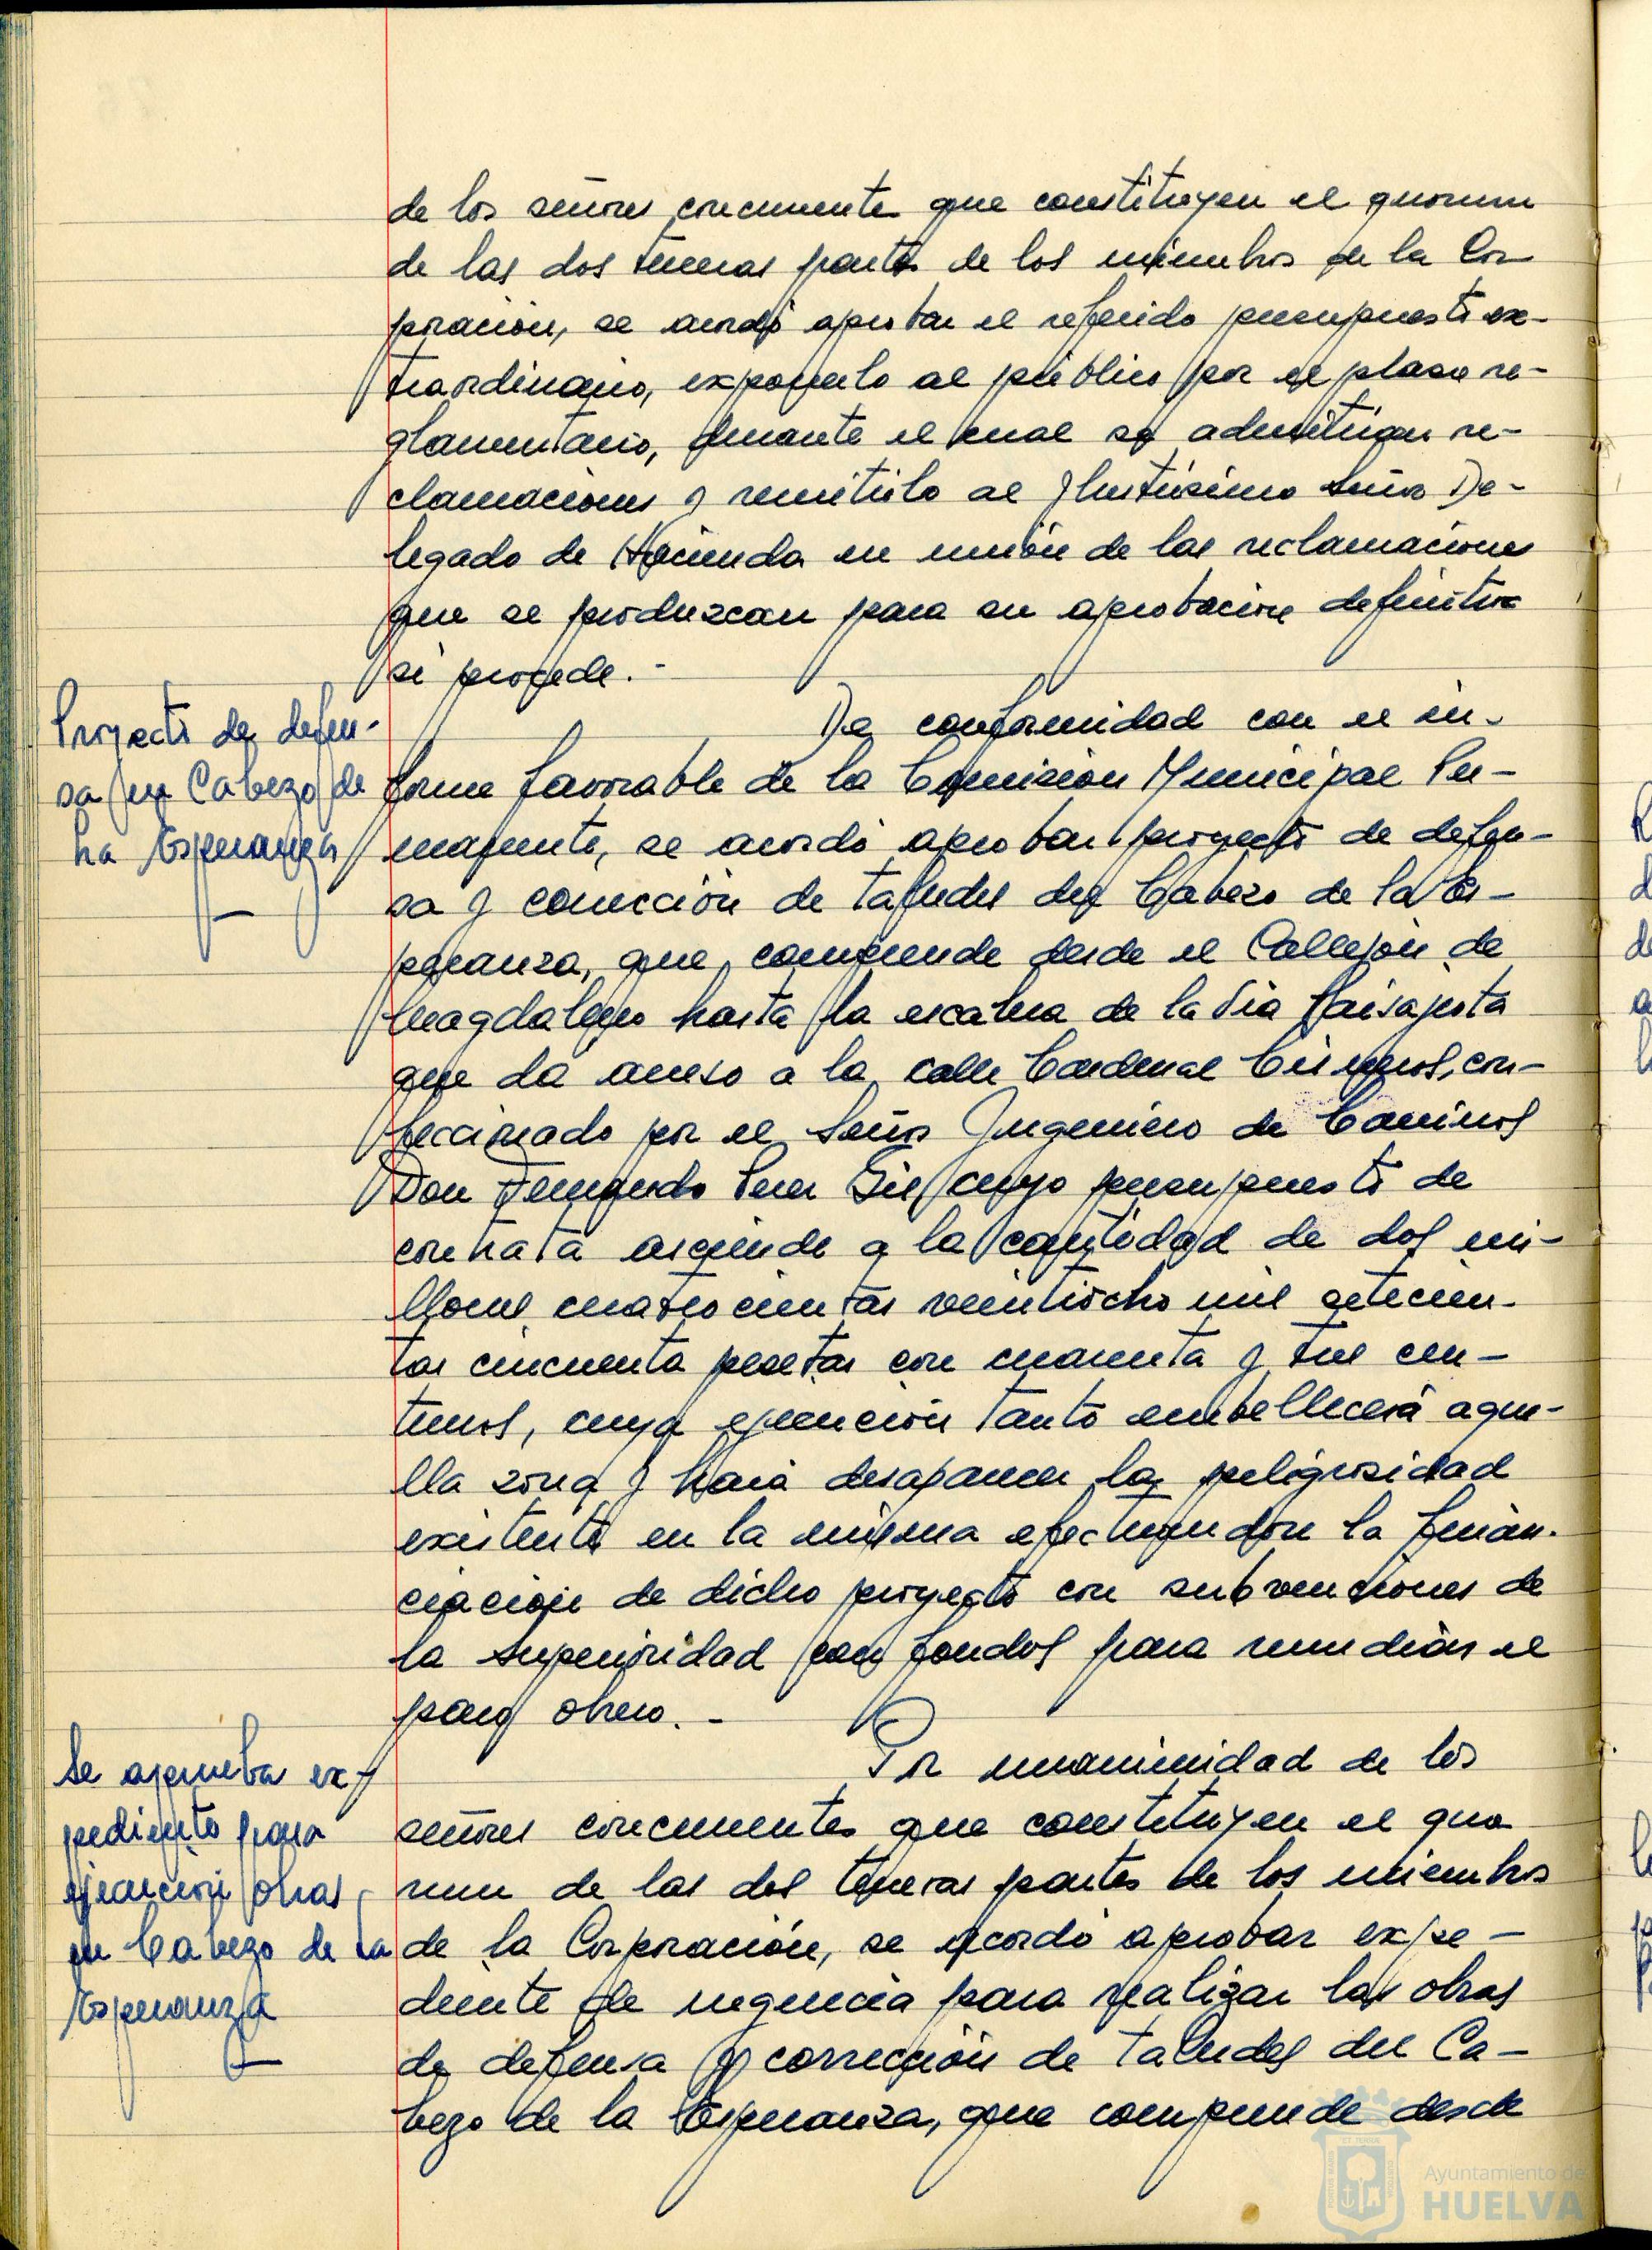 de los señores concurrentes que constituyen el quorum
de las dos terceras partes de los miembros de la Cor-
poración, se acordó aprobar el referido presupuesto ex-
traordinario, exponerlo al público por el plazo re-
glamentario, durante el cual se admitirán re-
clamaciones y remitirlo al Ilustrísimo Señor De-
legado de Hacienda en unión de las reclamaciones
que se produzcan para su aprobación definitiva
si procede.-
Proyecto de defen-
sa en Cabezo de
La Esperanza
De conformidad con el in-
forme favorable de la Comisión Municipal Per-
manente, se acordó aprobar proyecto de defen-
sa y corrección de taludes del Cabezo de la Es-
peranza, que comprende desde el Callejón de
Magdaleno hasta la escalera de la Vía Paisajista
que da acceso a la calle Cardenal Cisneros, con-
feccionado por el Señor Ingeniero de Caminos
Don Fernando Gil cuyo presupuesto de
contrata asciende a la cantidad de dos mi-
llones cuatrocientas veintiocho mil setecien-
tas cincuenta pesetas con cuarenta y tres cén-
timos, cuya ejecución tanto embellecerá aque-
lla zona y hará desaparecer la peligrosidad
existente en la misma efectuándose la finan-
ciación de dicho proyecto con subvenciones de
la Superioridad con fondos para remediar el
paro obrero.-
Se aprueba ex-
pediente para
ejecución obras
en Cabezo de La
Esperanza
Por unanimidad de los
señores concurrentes que constituyen el quo
rum de las dos terceras partes de los miembros
de la Corporación, se acordó aprobar expe-
diente de urgencia para realizar las obras
de defensa y corrección de taludes del Ca-
bezo de la Esperanza, que comprende desde
Ayuntamiento de
HUELVA